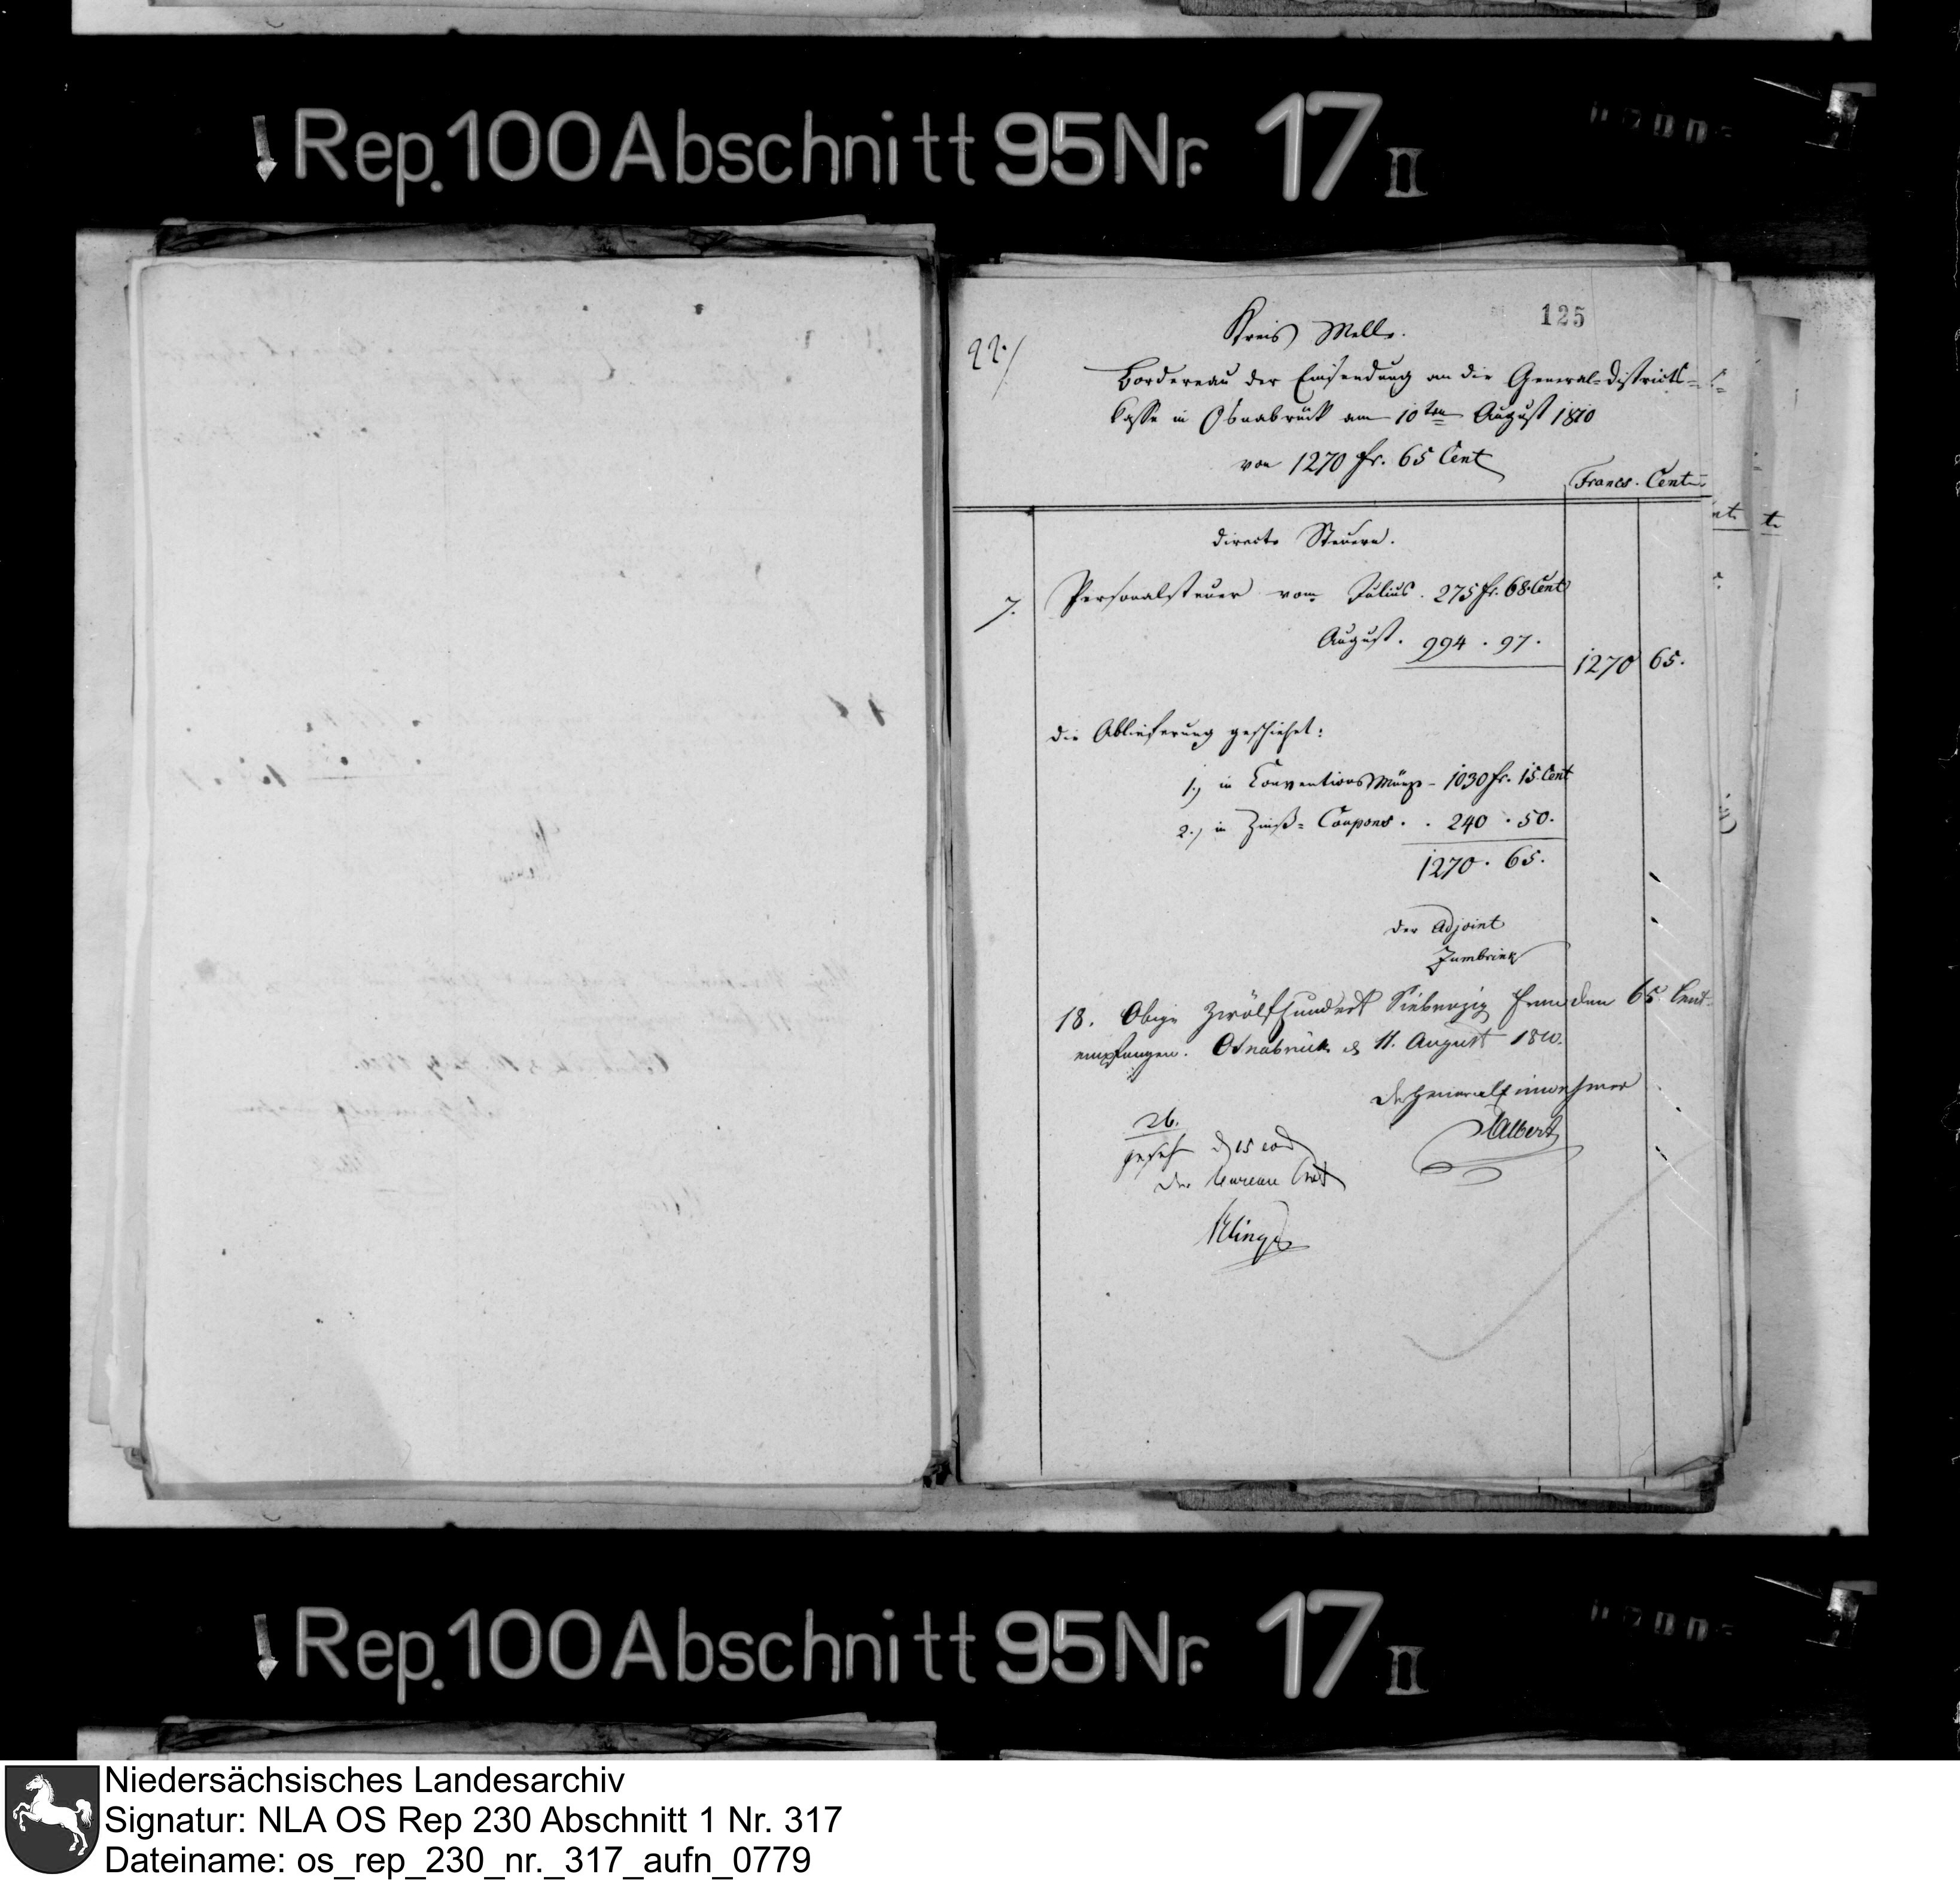 Rep. 100 Abschnitt 95 Nr. 17 II
125
22./
Kreis Melle.
Bordereau der Einsendung an die General-Districts-
Casse in Osnabrück am 10ten August 1810
von 1270 fr. 65 Cent
Francs. Cent.
directe Steuern.
7. Personalsteuer vom Julius. 275 fr. 68 Cent
August. 994 . 97.
1270 65.
die Ablieferung geschiehet:
1., in Conventions Münze - 1030 fr. 15 Cent
2., in Zinß-Coupons . . 240 . 50.
1270. 65.
der Adjoint
Zumbrink
18. Obige zwölfhundert Siebenzig Franken 65 Cent.
empfangen. Osnabrück d 11. August 1810.
Der Generaleinnehmer
Albert
26.
geseh d 15 eod
Der Bureau Chef
Klinge
Rep. 100 Abschnitt 95 Nr. 17 II
Niedersächsisches Landesarchiv
Signatur: NLA OS Rep 230 Abschnitt 1 Nr. 317
Dateiname: os_rep_230_nr._317_aufn_0779